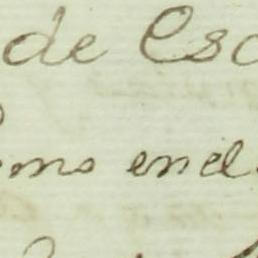 de Esc
omo enel